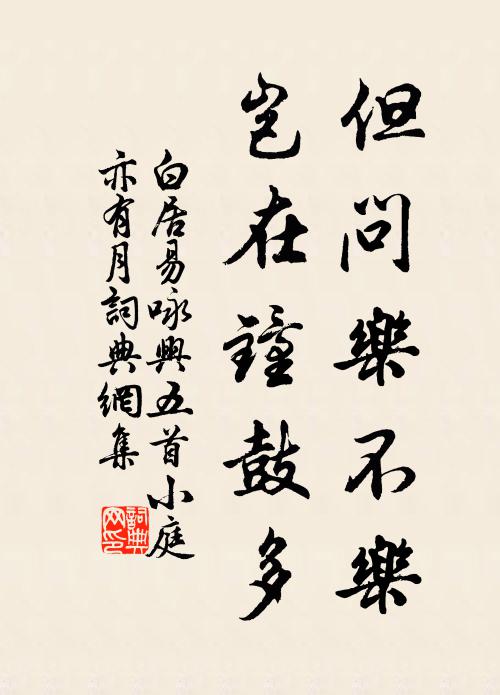 但問樂不樂
豈在鐘鼓多
白居易咏興五首小庭
亦有月詞典網集
詞典
网印